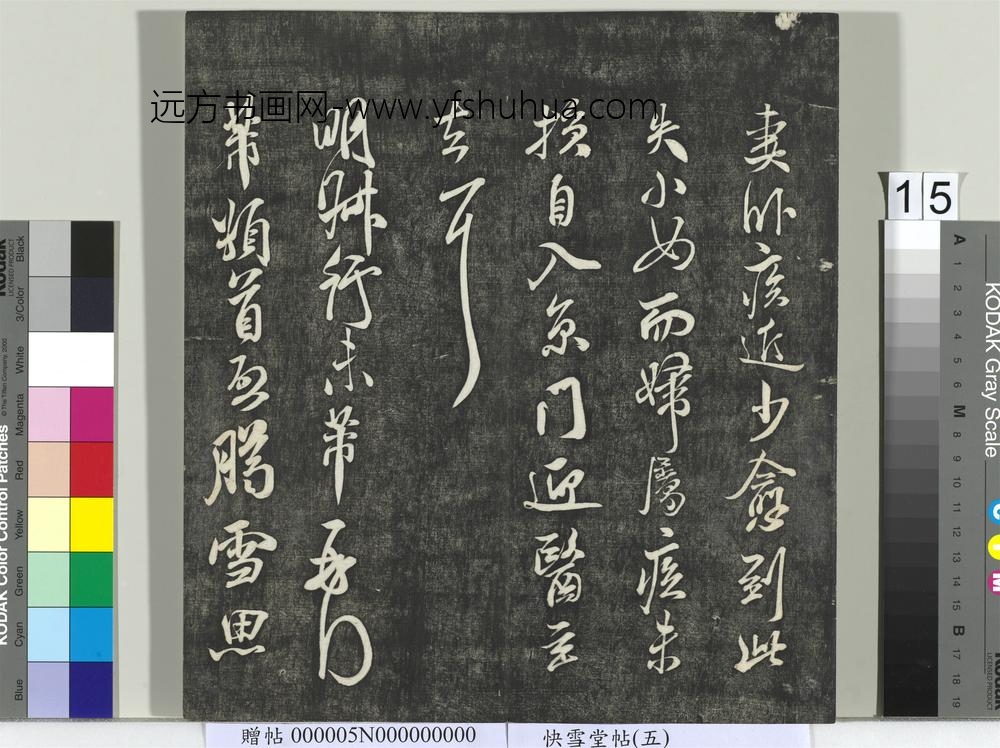 妻卧疾近少愈到此
失小女而婦屬疾未
損自入京门迎醫
耳
明行未芾再拜
芾頓首雪思
远方书画网-www.yfshuhua.com
15
KODAK Color Control Patches
© The Tiffen Company, 2000
LICENSED PRODUCT
Blue
Cyan
Green
Yellow
Red
Magenta
White
3/Color
Black
KODAK Gray Scale
A 1 2 3 4 5 6 M 8 9 10 11 12 13 14 15 B 17 18 19
C
Y
M
贈帖 000005N000000000
快雪堂帖(五)